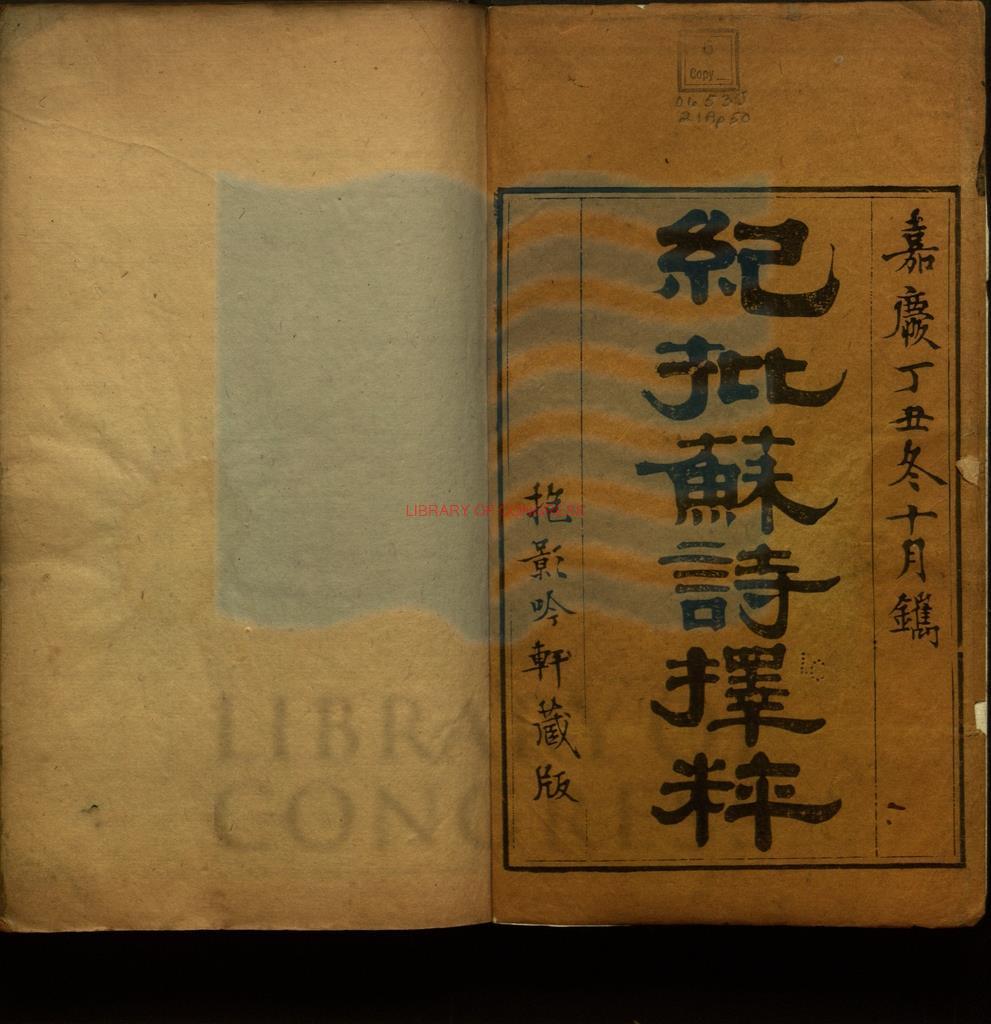 嘉慶丁丑冬十月鐫
紀批蘇詩擇粹
抱影吟軒藏版
Copy
LIBRARY OF CONGRESS
LIBRARY OF
CONGRESS